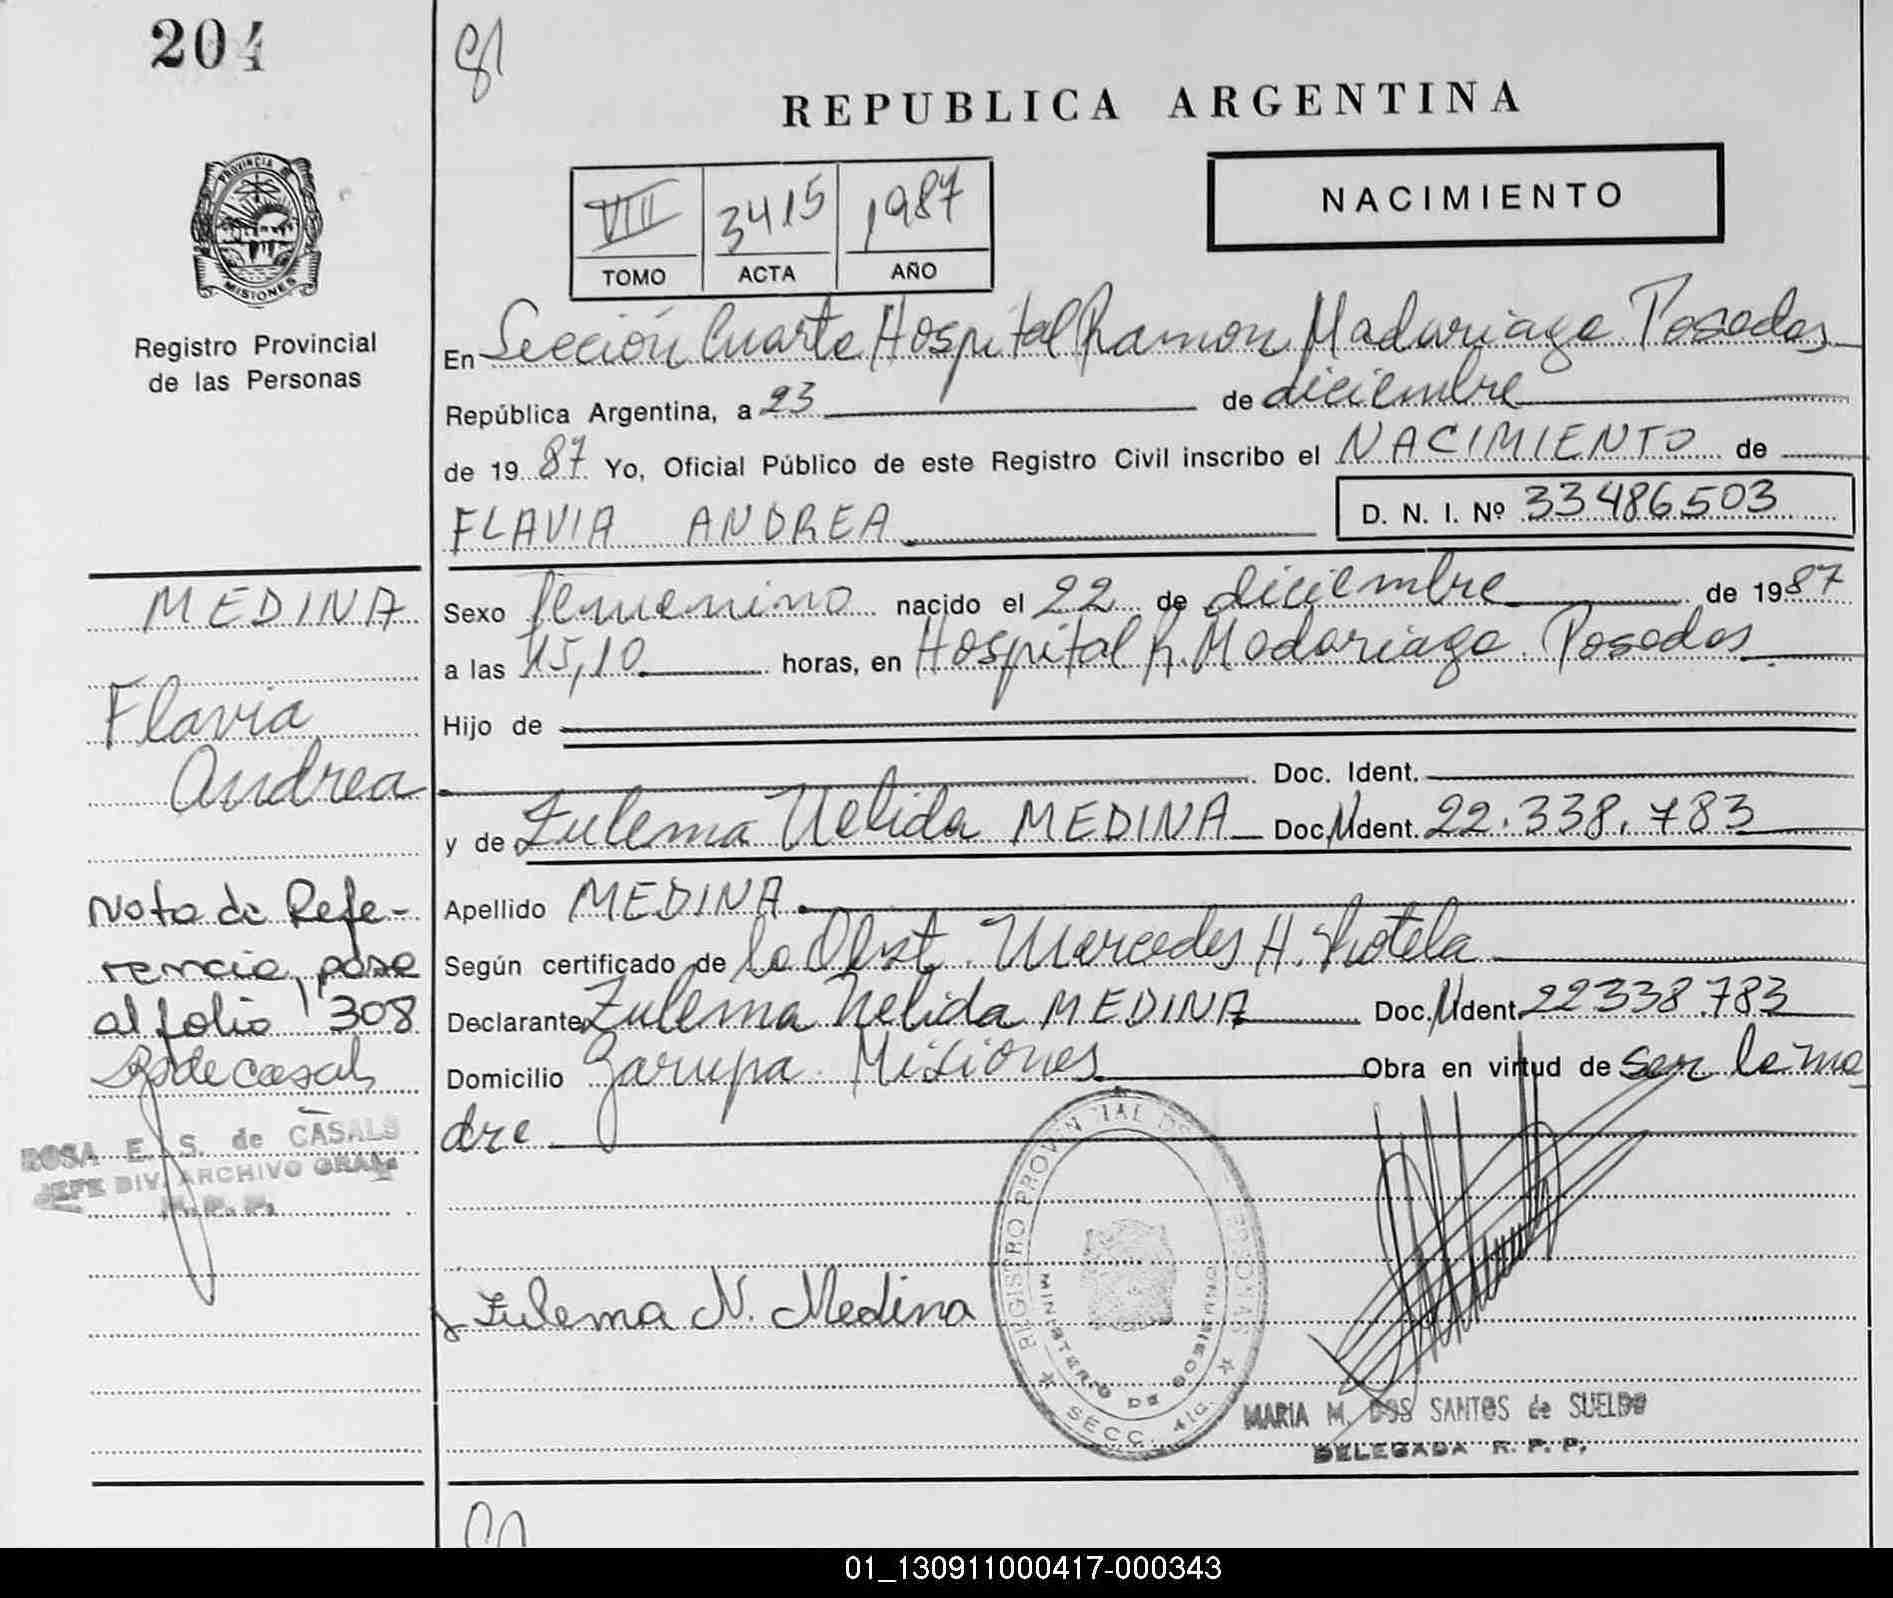 204
81
REPUBLICA ARGENTINA
PROVINCIA DE
MISIONES
Registro Provincial
de las Personas
VIII 3415 1987
TOMO ACTA AÑO
NACIMIENTO
En Sección Cuarta Hospital Ramon Madariaga. Posadas
República Argentina, a 23 de diciembre
de 1987 Yo, Oficial Público de este Registro Civil inscribo el NACIMIENTO de
FLAVIA ANDREA D. N. I. Nº 33486503
Sexo femenino nacido el 22 de diciembre de 1987
a las 15,10 horas, en Hospital R. Madariaga. Posadas
Hijo de
Doc. Ident.
y de Zulema Nelida MEDINA Doc. Ident. 22.338.783
Apellido MEDINA
Según certificado de la Obst. Mercedes H.
Declarante Zulema Nelida MEDINA Doc. Ident. 22338.783
Domicilio Garupa. Misiones Obra en virtud de ser la ma
dre
Zulema N. Medina
MEDINA
Flavia
Andrea
Nota de Refe-
rencia, pase
al folio 308
ROSA E. S. de CASALS
JEFE DIV. ARCHIVO GRAL
R. P. P.
REGISTRO PROVINCIAL DE
MINISTERIO DE GOBIERNO
SECC. 4
MARIA M. DOS SANTOS de SUELDO
DELEGADA R. P. P.
01_130911000417-000343